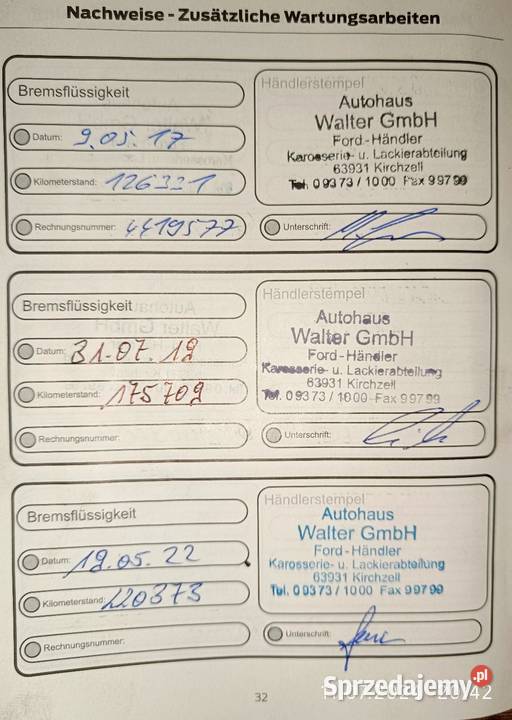 Nachweise - Zusätzliche Wartungsarbeiten
Bremsflüssigkeit
Datum: 9.05.17
Kilometerstand: 126321
Rechnungsnummer: 4419577
Händlerstempel
Autohaus
Walter GmbH
Ford-Händler
Karosserie- u. Lackierabteilung
63931 Kirchzell
Tel. 09373/1000 Fax 99799
Unterschrift:
Bremsflüssigkeit
Datum: 31.07.19
Kilometerstand: 175709
Rechnungsnummer:
Händlerstempel
Autohaus
Walter GmbH
Ford-Händler
Karosserie- u. Lackierabteilung
63931 Kirchzell
Tel. 09373/1000 Fax 99799
Unterschrift:
Bremsflüssigkeit
Datum: 19.05.22
Kilometerstand: 220373
Rechnungsnummer:
Händlerstempel
Autohaus
Walter GmbH
Ford-Händler
Karosserie- u. Lackierabteilung
63931 Kirchzell
Tel. 09373/1000 Fax 99799
Unterschrift:
32
Sprzedajemy.pl